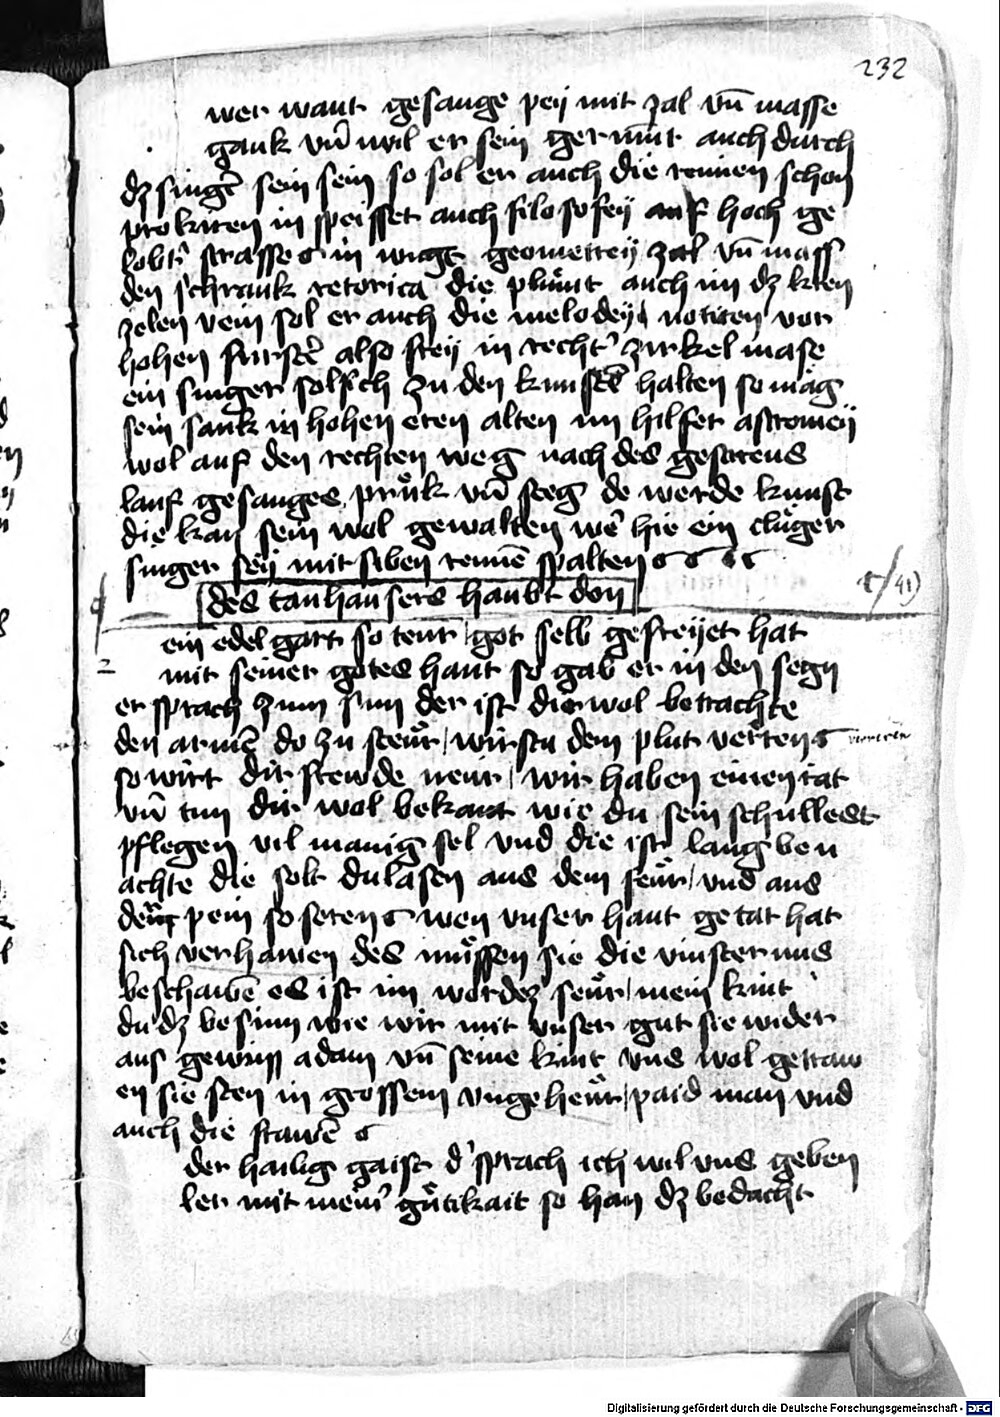 232
wer wont gesange peÿ mit zal vn̄ masse
gank vn̄ wil er sein gerūmt auch durch
dz singer̄ sein sein so sol er auch die reinen schon
prokiren in speisset auch filosofeÿ auf hoch ge
lobt' strasse in wage geometreÿ zal vn̄ mass
den schrank retorica die plůmt auch im dz kren
zelen vein sol er auch die melodeÿ notiren vor
hohen furster̄ also freÿ in recht' zirkel mase
ein singer sol sich zu den kunstē halten so mag
sein sank in hohen eren alten im hilfet astromeÿ
wol auf den rechten weg nach des gestirens
lauf gesanges průk vn̄ steg de werde kunst
die kan sein wol gewalten we' hie ein clůger
singer seÿ mit siben reinē spalten
des tanhausers haubt don
41)
ein edel gart so teur got selb gefreÿet hat
2 mit seiner gotes hant so gab er in den segn
er sprach zum sun der ist dir wol betrachte
den armē do zu steůr / wirstu dem plut verren
so wirt dir frewde neur / wir haben einen rat
vn̄ tun dir wol bekant wie du sein schullest
pflegen vil manig sel vnd die ist lang ben
achte die solt du lasen aus dem feůr / vnd aus
der pein so seren wen vnser hant getat hat
sich verhawen des můssen sie die vinsternus
beschawē es ist im worden seůr / mein kint
du dz besinn wie wir mit vnser gut sie wider
aus gewinn adam vn̄ seine kint vns wol getraw
en sie sten in grossem vngeheůr / paid man vnd
auch die frawē
der hailig gaist d' sprach ich wil vns geben
ler mit meim' gůtikait so han dz bedacht
Digitalisierung gefördert durch die Deutsche Forschungsgemeinschaft - DFG